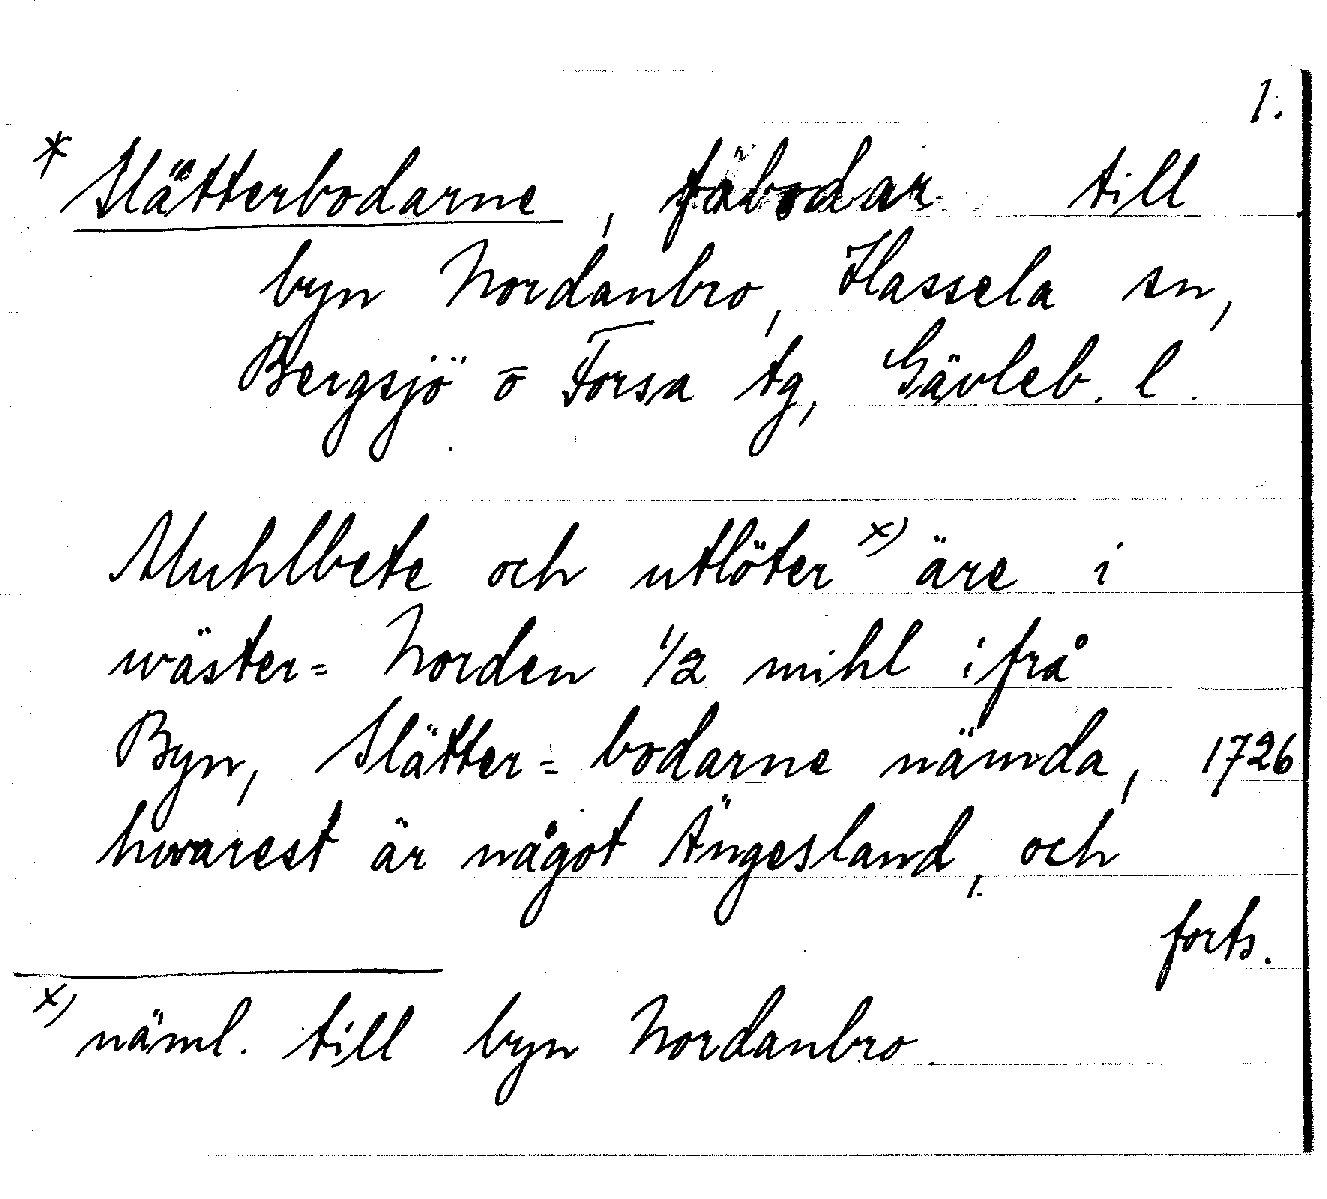 1.
* Slätterbodarne, fäbodar till
byn Nordanbro, Hassela sn,
Bergsjö o Forsa tg, Gävleb. l.
Muhlbete och utlöter x) äre i
wäster= Norden 1/2 mihl ifrå
Byn, Slätter= bodarne nämda, 1726
hwarest är något Ängesland, och
forts.
x) näml. till byn Nordanbro